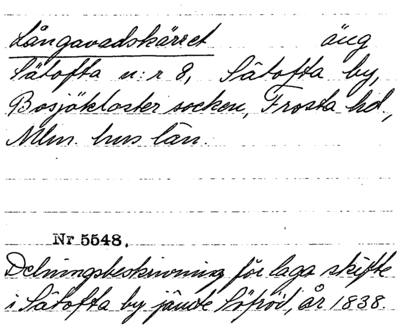 Långavadskärret äng
Sätofta n:r 8, Sätofta by,
Bosjökloster socken, Frosta hd.,
Mlm. hus län.
Nr 5548.
Delningsbeskrivning för laga skifte
i Sätofta by jämte Sjöröd, år 1838.